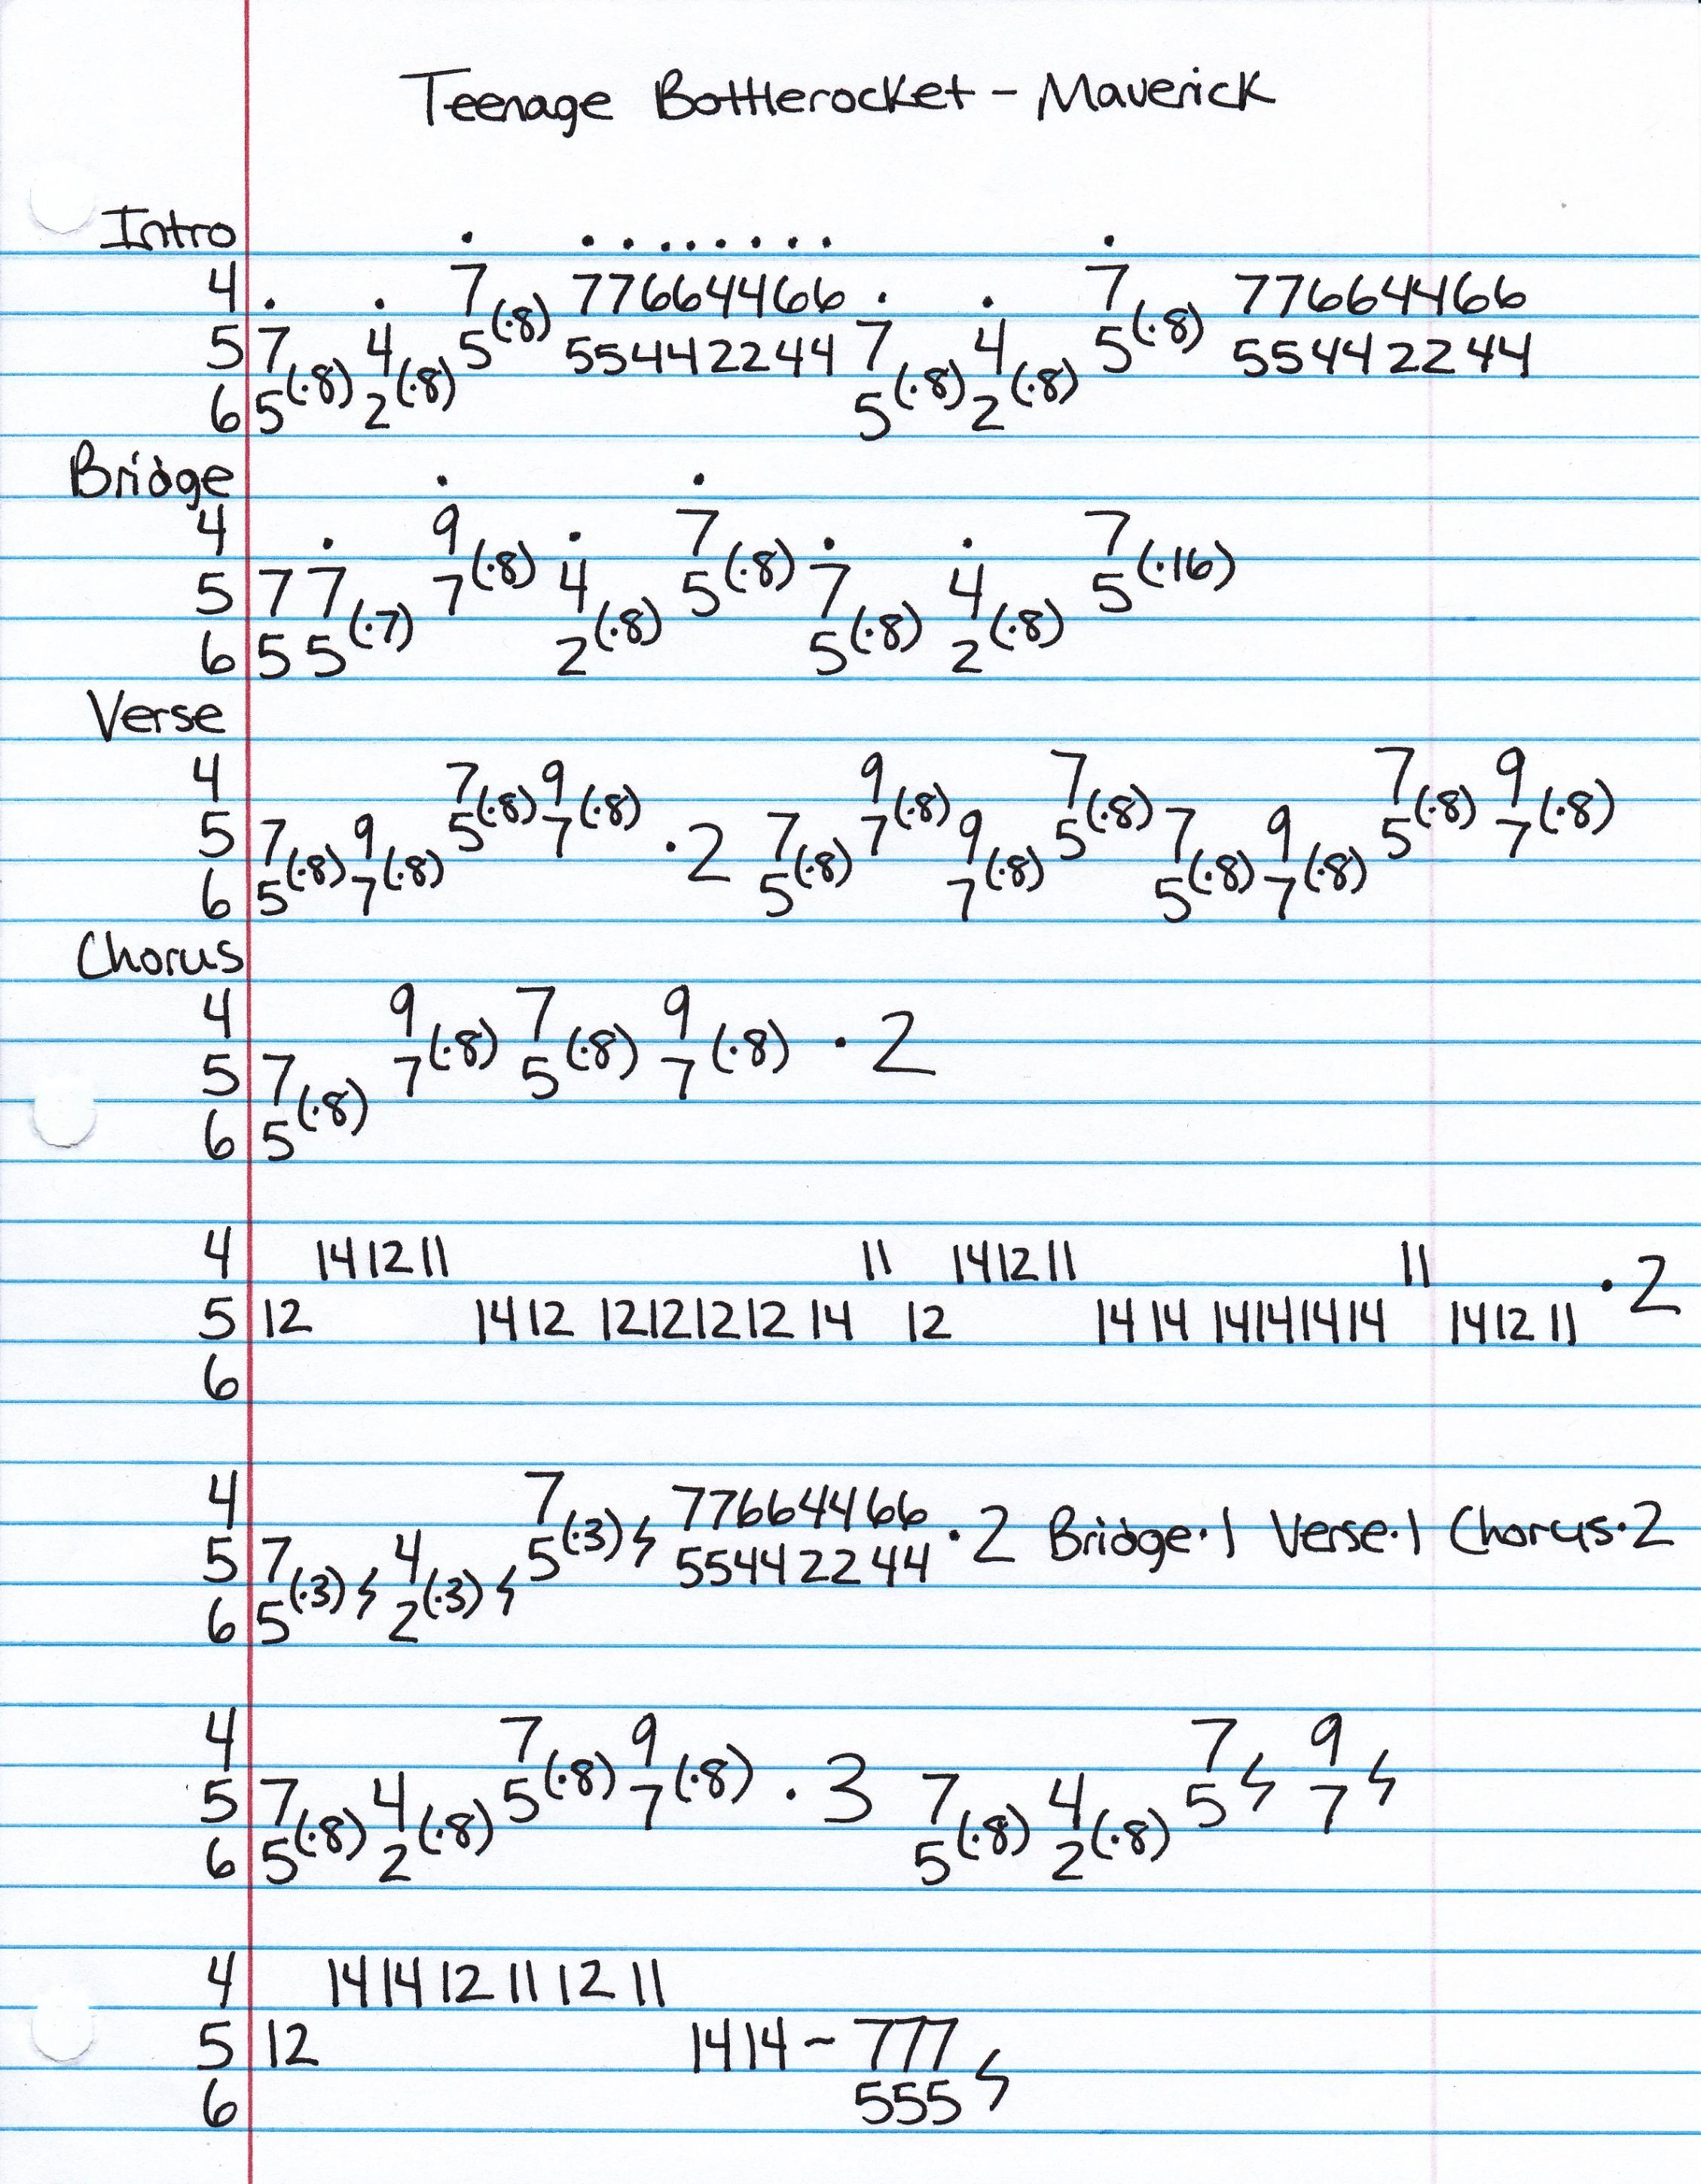 Teenage Bottlerocket - Maverick
Intro
4 7(·8) 77664466 7(·8) 77664466
5 7(·8) 4(·8) 5 55442244 7(·8) 4(·8) 5 55442244
6 5 2 5 2
Bridge
4 9(·8) 7(·8) 7(·16)
5 7 7(·7) 7 4(·8) 5 7(·8) 4(·8) 5
6 5 5 2 5 2
Verse
4 7(·8) 9(·8) 9(·8) 7(·8) 7(·8) 9(·8)
5 7(·8) 9(·8) 5 7 ·2 7(·8) 7 9(·8) 5 7(·8) 9(·8) 5 7
6 5 7 5 7 5 7
Chorus
4 9(·8) 7(·8) 9(·8) ·2
5 7(·8) 7 5 7
6 5
4 14 12 11 11 14 12 11 11 ·2
5 12 14 12 12 12 12 12 14 12 14 14 14 14 14 14 14 12 11
6
4 7(·3)ϟ 77664466 ·2 Bridge·1 Verse·1 Chorus·2
5 7(·3)ϟ 4(·3)ϟ 5 55442244
6 5 2
4 7(·8) 9(·8) ·3 7ϟ 9ϟ
5 7(·8) 4(·8) 5 7 7(·8) 4(·8) 5 7
6 5 2 5 2
4 14 14 12 11 12 11
5 12 14 14 ~ 777ϟ
6 555